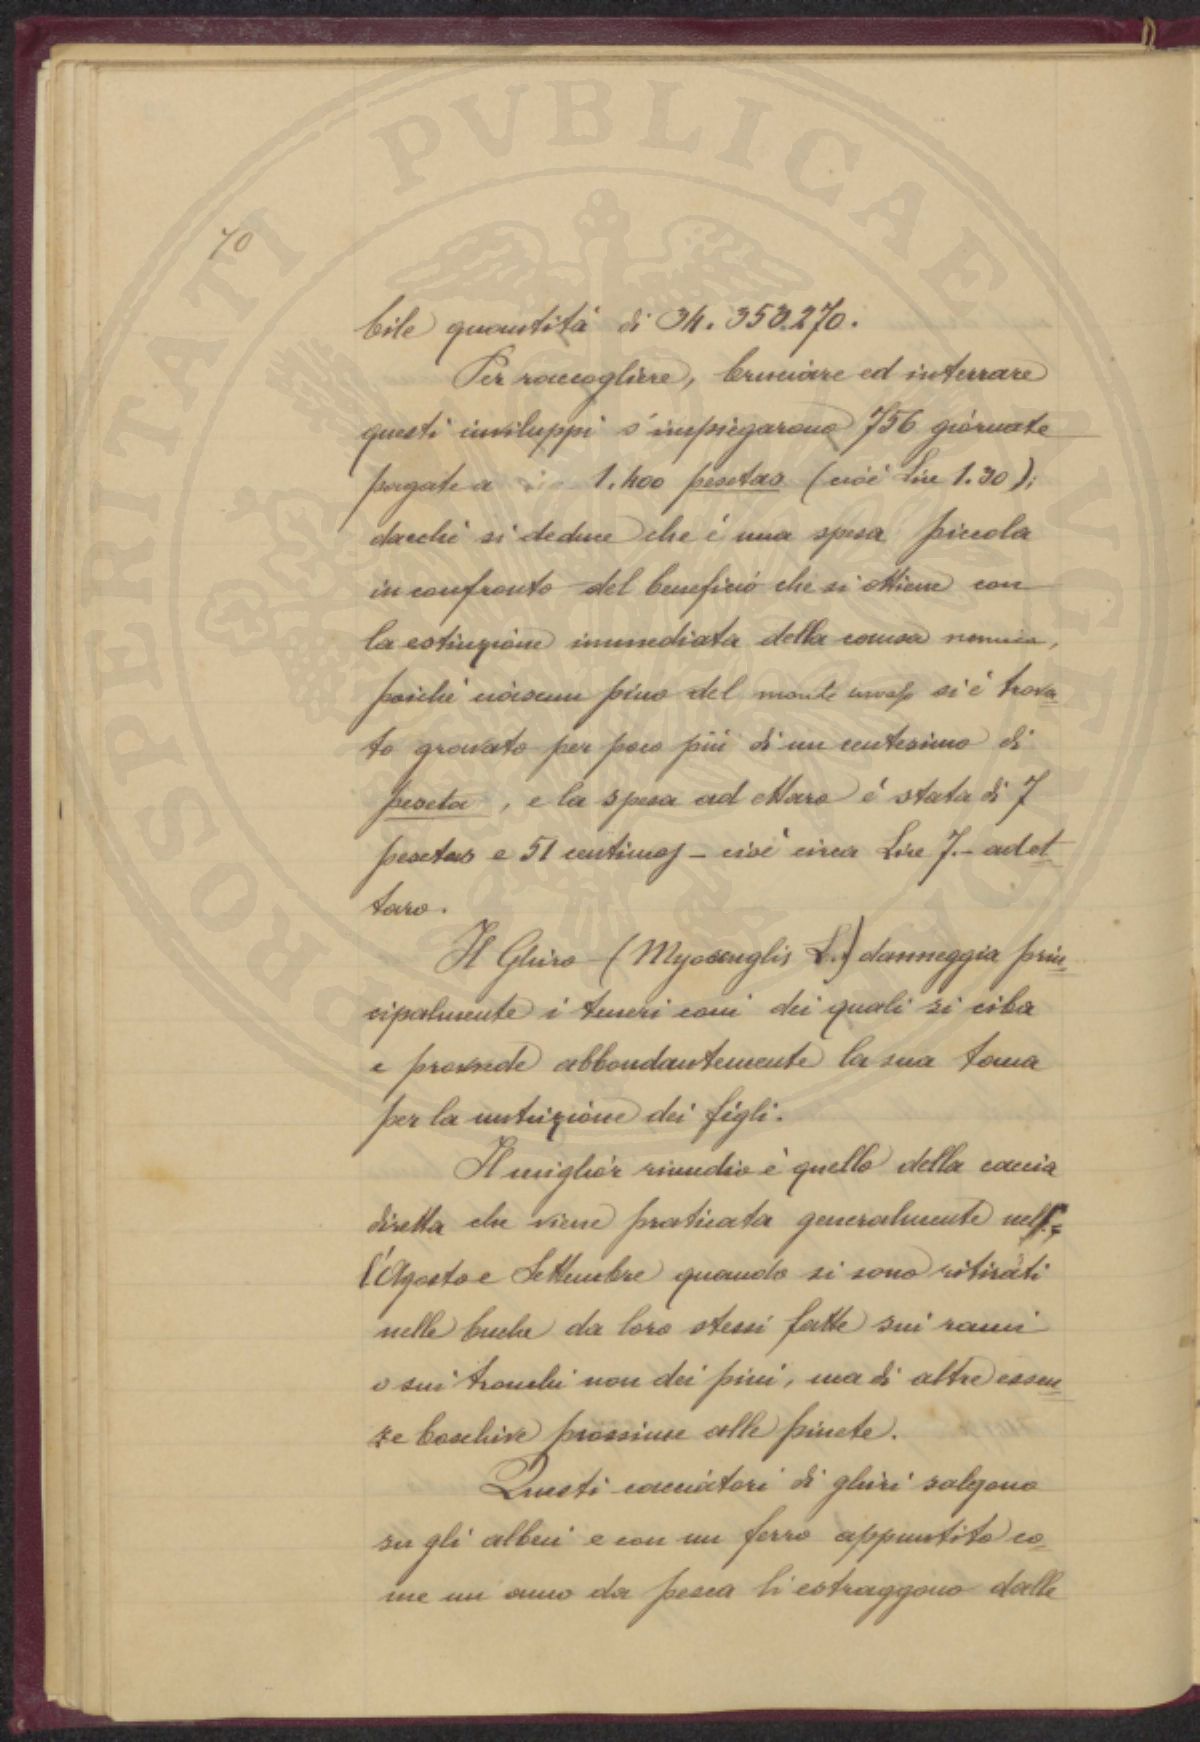 70
bile quantità di 34.353.270.
Per raccogliere, bruciare ed interrare
questi inviluppi s'impiegarono 756 giornate
pagate a 1.400 pesetas (cioè Lire 1.30);
dacchè si deduce che è una spesa piccola
in confronto del beneficio che si ottiene con
la estinzione immediata della causa nemica,
poichè ciascun pino del monte si è trova
to gravato per poco più di un centesimo di
peseta, e la spesa ad ettaro è stata di 7
pesetas e 51 centimos - cioè circa Lire 7.- ad et
taro.
Il Ghiro - (Myoxus glis L.) danneggia prin
cipalmente i teneri coni dei quali si ciba
e provvede abbondantemente la sua tana
per la nutrizione dei figli.
Il miglior rimedio è quello della caccia
diretta che viene praticata generalmente nel-
l'Agosto e Settembre quando si sono ritirati
nelle buche da loro stessi fatte sui rami
o sui tronchi non dei pini, ma di altre essen
ze boschive prossime alle pinete.
Questi cacciatori di ghiri salgono
su gli alberi e con un ferro appuntito co-
me un amo da pesca li estraggono dalle
PROSPERITATI PVBLICAE AVGENDAE